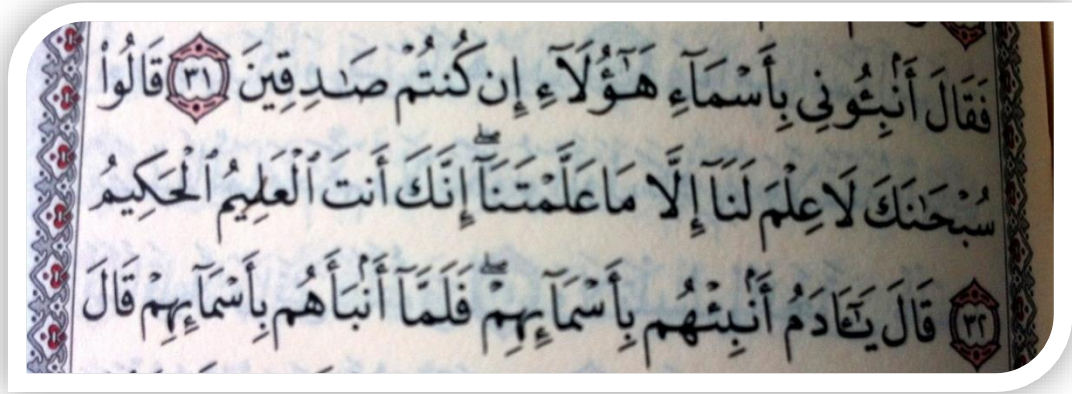 فَقَالَ أَنۢبِـُٔونِى بِأَسْمَآءِ هَـٰٓؤُلَآءِ إِن كُنتُمْ صَـٰدِقِينَ ٣١ قَالُوا۟
سُبْحَـٰنَكَ لَا عِلْمَ لَنَآ إِلَّا مَا عَلَّمْتَنَآ ۖ إِنَّكَ أَنتَ ٱلْعَلِيمُ ٱلْحَكِيمُ
٣٢ قَالَ يَـٰٓـَٔادَمُ أَنۢبِئْهُم بِأَسْمَآئِهِمْ ۖ فَلَمَّآ أَنۢبَأَهُم بِأَسْمَآئِهِمْ قَالَ